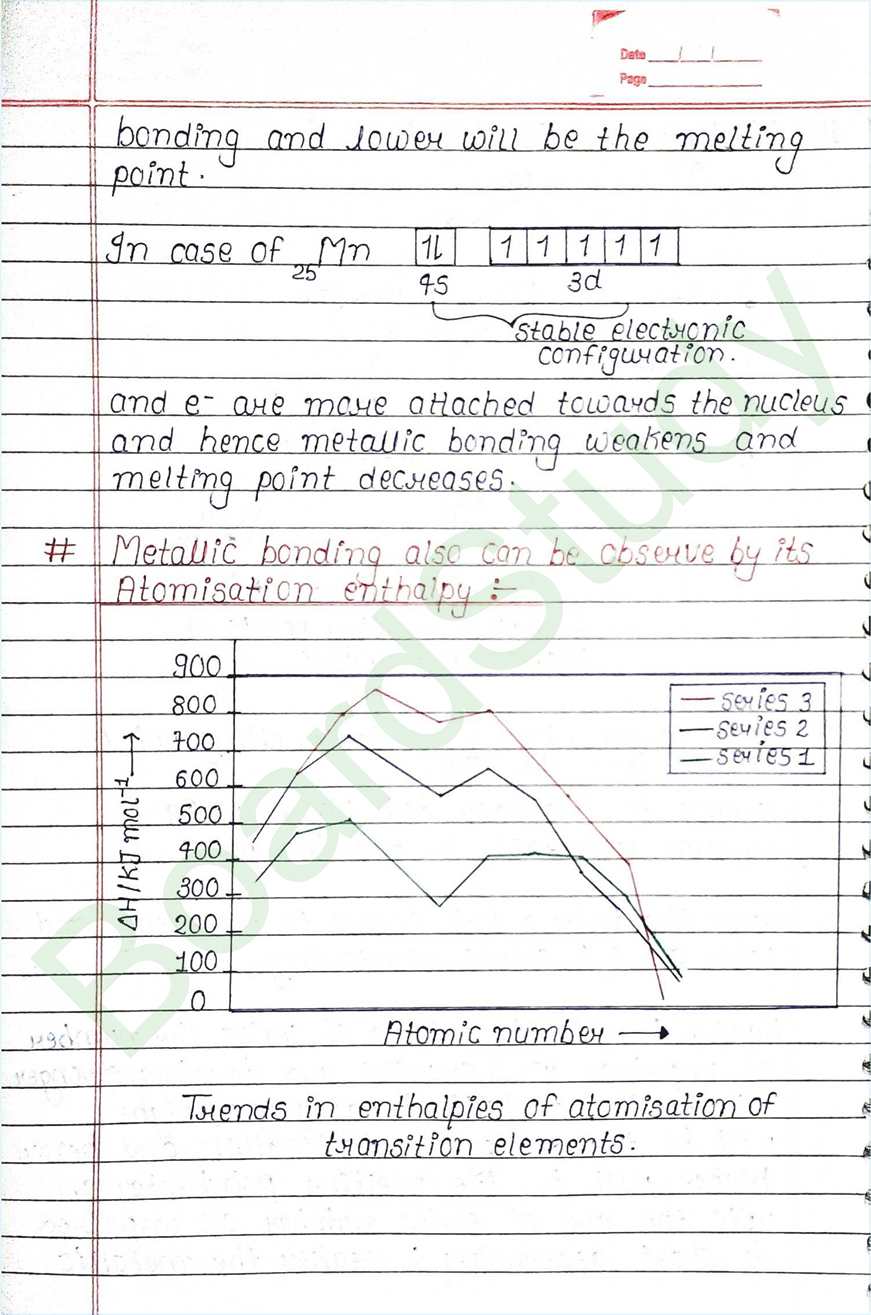 Date / /
Page
bonding and lower will be the melting
point.
In case of 25Mn 1l 1 1 1 1 1
4s 3d
stable electronic
configuration.
and e- are more attached towards the nucleus
and hence metallic bonding weakens and
melting point decreases.
# Metallic bonding also can be observe by its
Atomisation enthalpy :-
900
800
700
600
500
400
300
200
100
0
ΔH/KJ mol⁻¹ →
series 3
series 2
series 1
Atomic number →
Trends in enthalpies of atomisation of
transition elements.
BoardStudy